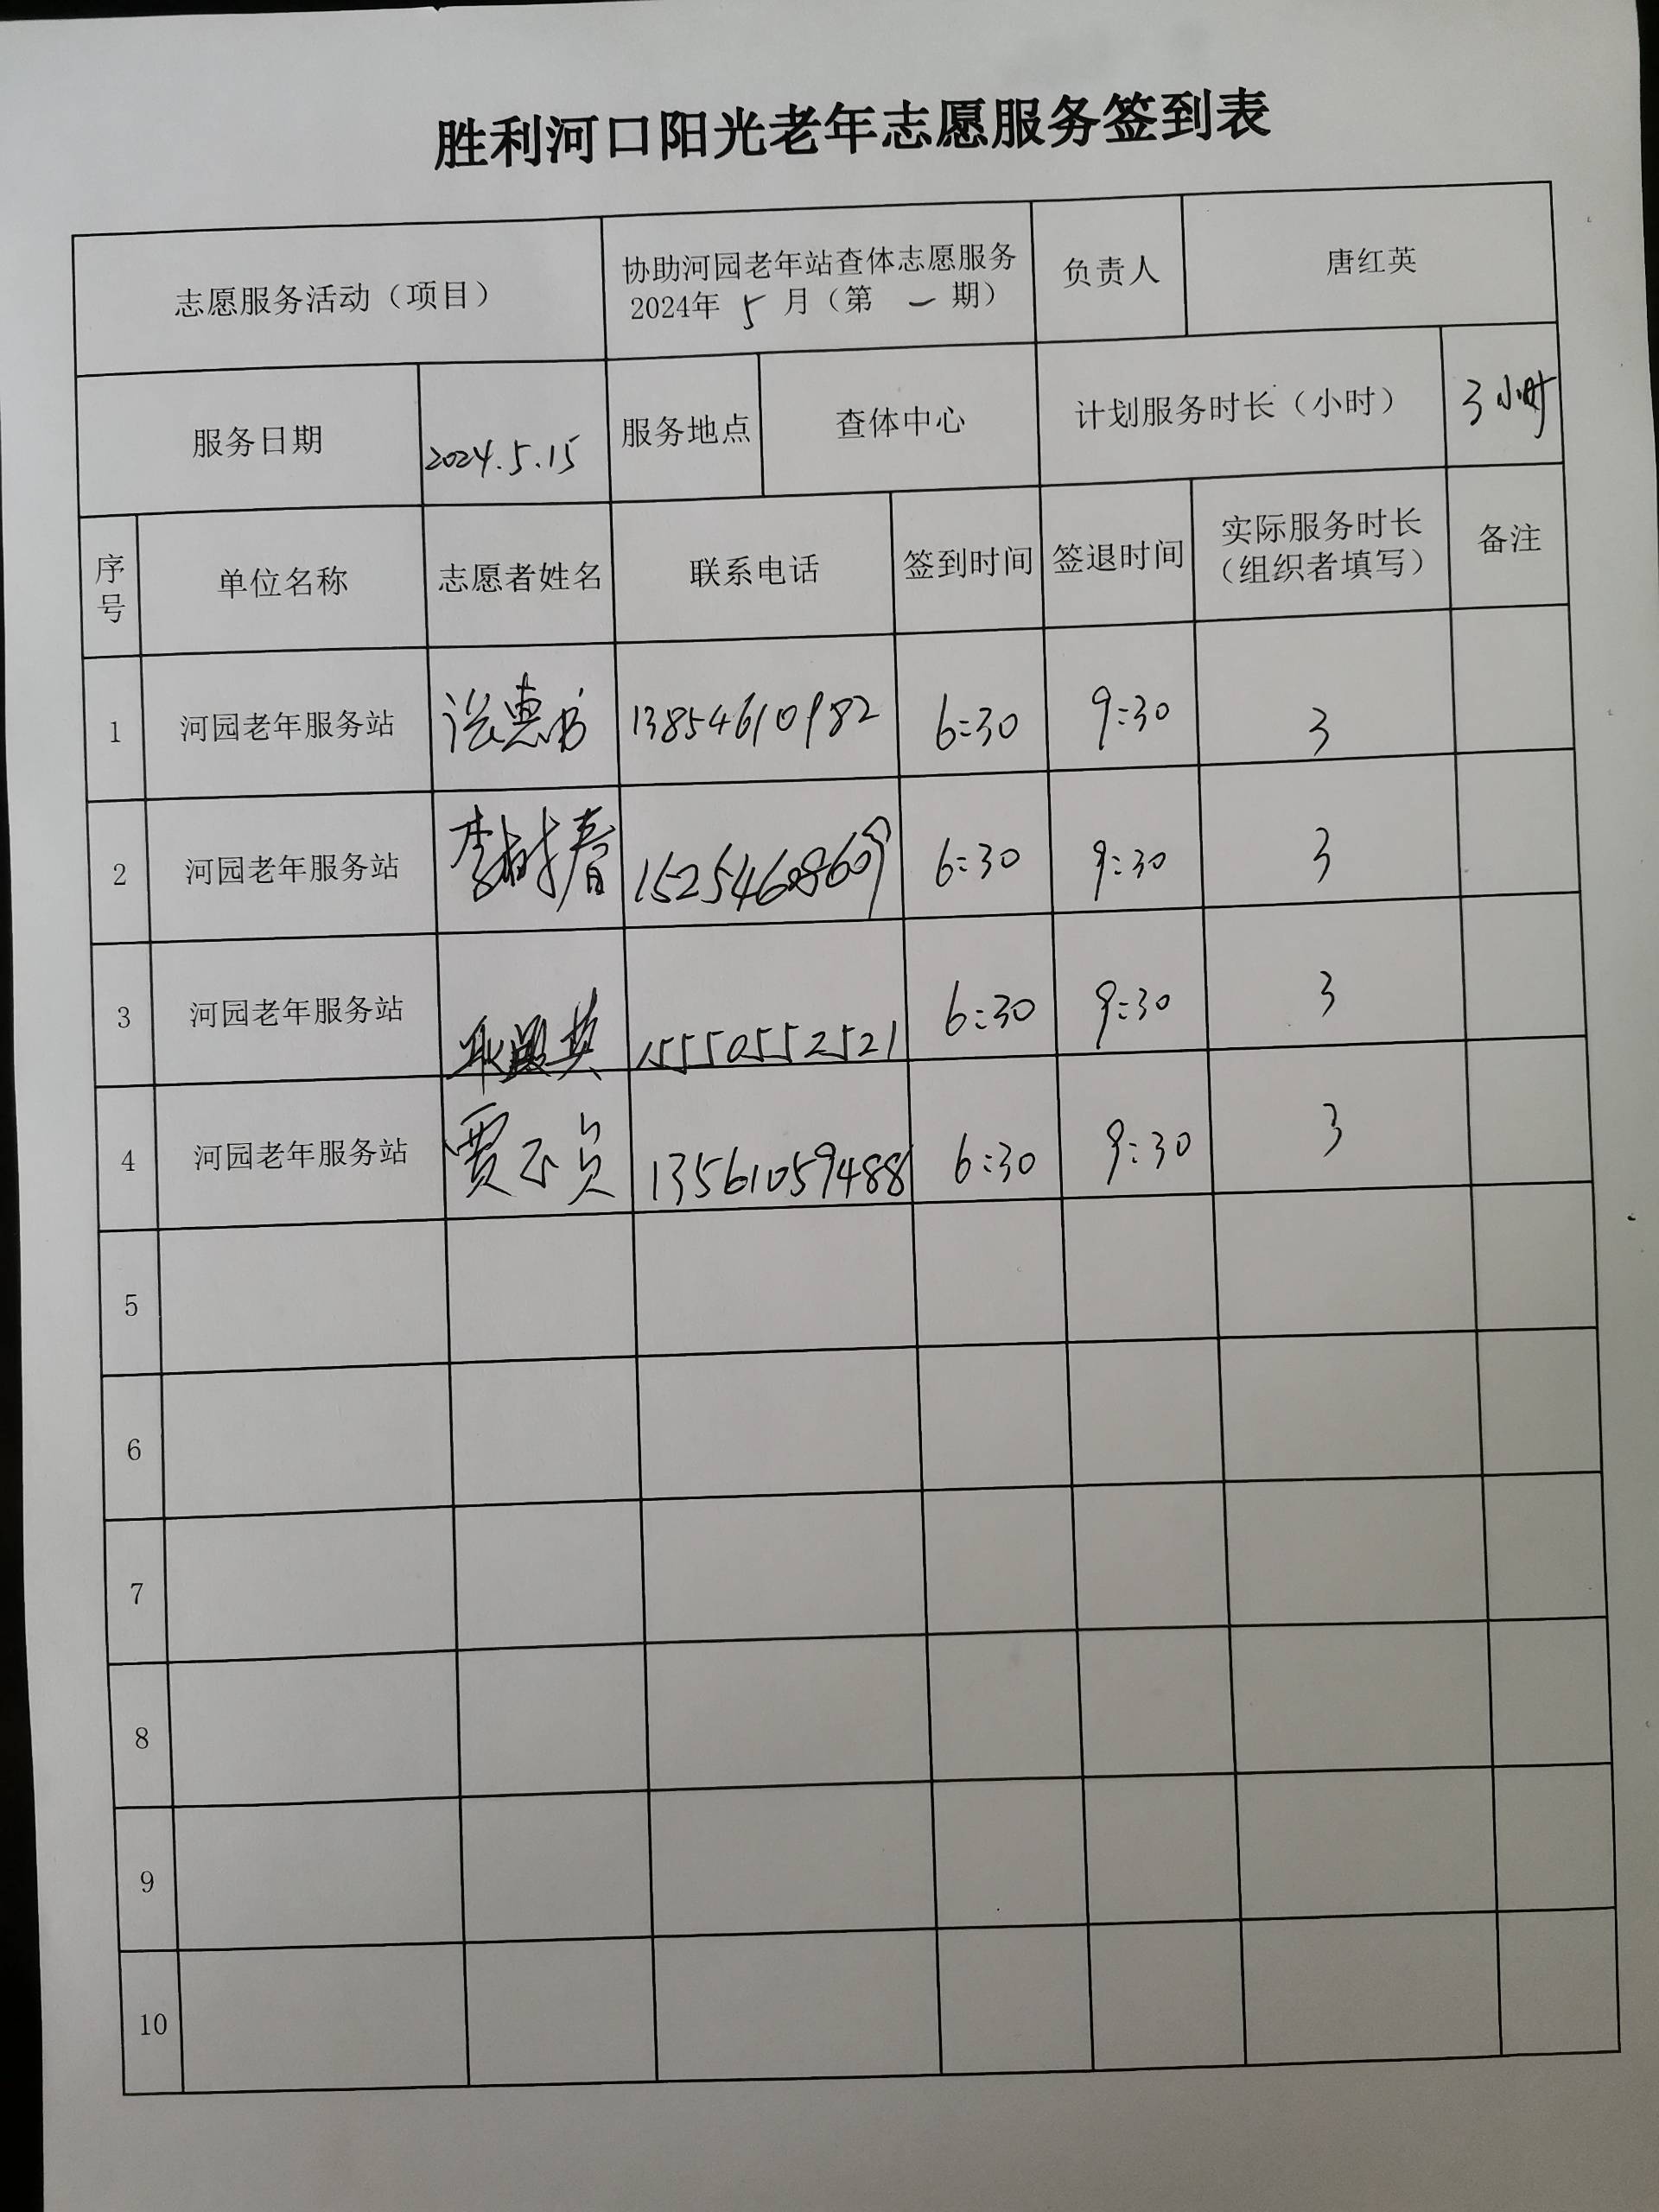 胜利河口阳光老年志愿服务签到表
志愿服务活动（项目）
协助河园老年站查体志愿服务
2024年 5 月（第 一 期）
负责人
唐红英
服务日期
2024.5.15
服务地点
查体中心
计划服务时长（小时）
3小时
序号
单位名称
志愿者姓名
联系电话
签到时间
签退时间
实际服务时长
（组织者填写）
备注
1 河园老年服务站 13854610982 6:30 9:30 3
2 河园老年服务站 李树春 6:30 9:30 3
3 河园老年服务站 15550552521 6:30 9:30 3
4 河园老年服务站 贾 贞 13561059488 6:30 9:30 3
5
6
7
8
9
10